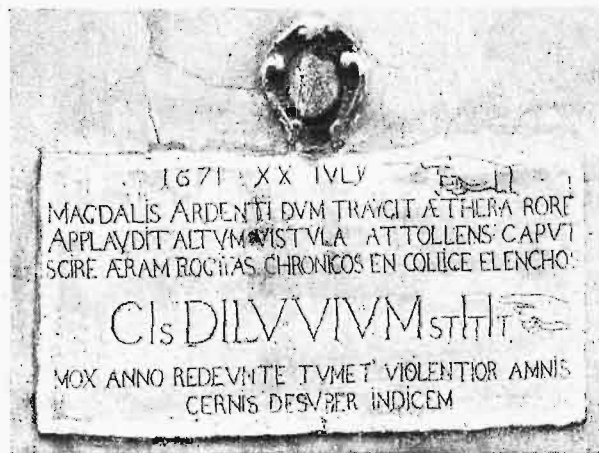 1671 XX IVLY
MAGDALIS ARDENTI DVM TRAYCIT ÆTHERA RORE
APPLAVDIT ALTVM VISTVLA ATTOLLENS CAPVT
SCIRE ÆRAM ROGITAS CHRONICOS EN COLLIGE ELENCHOS
CIs DILVVIVM sTITIt
MOX ANNO REDEVNTE TVMET VIOLENTIOR AMNIS
CERNIS DESVPER INDICEM